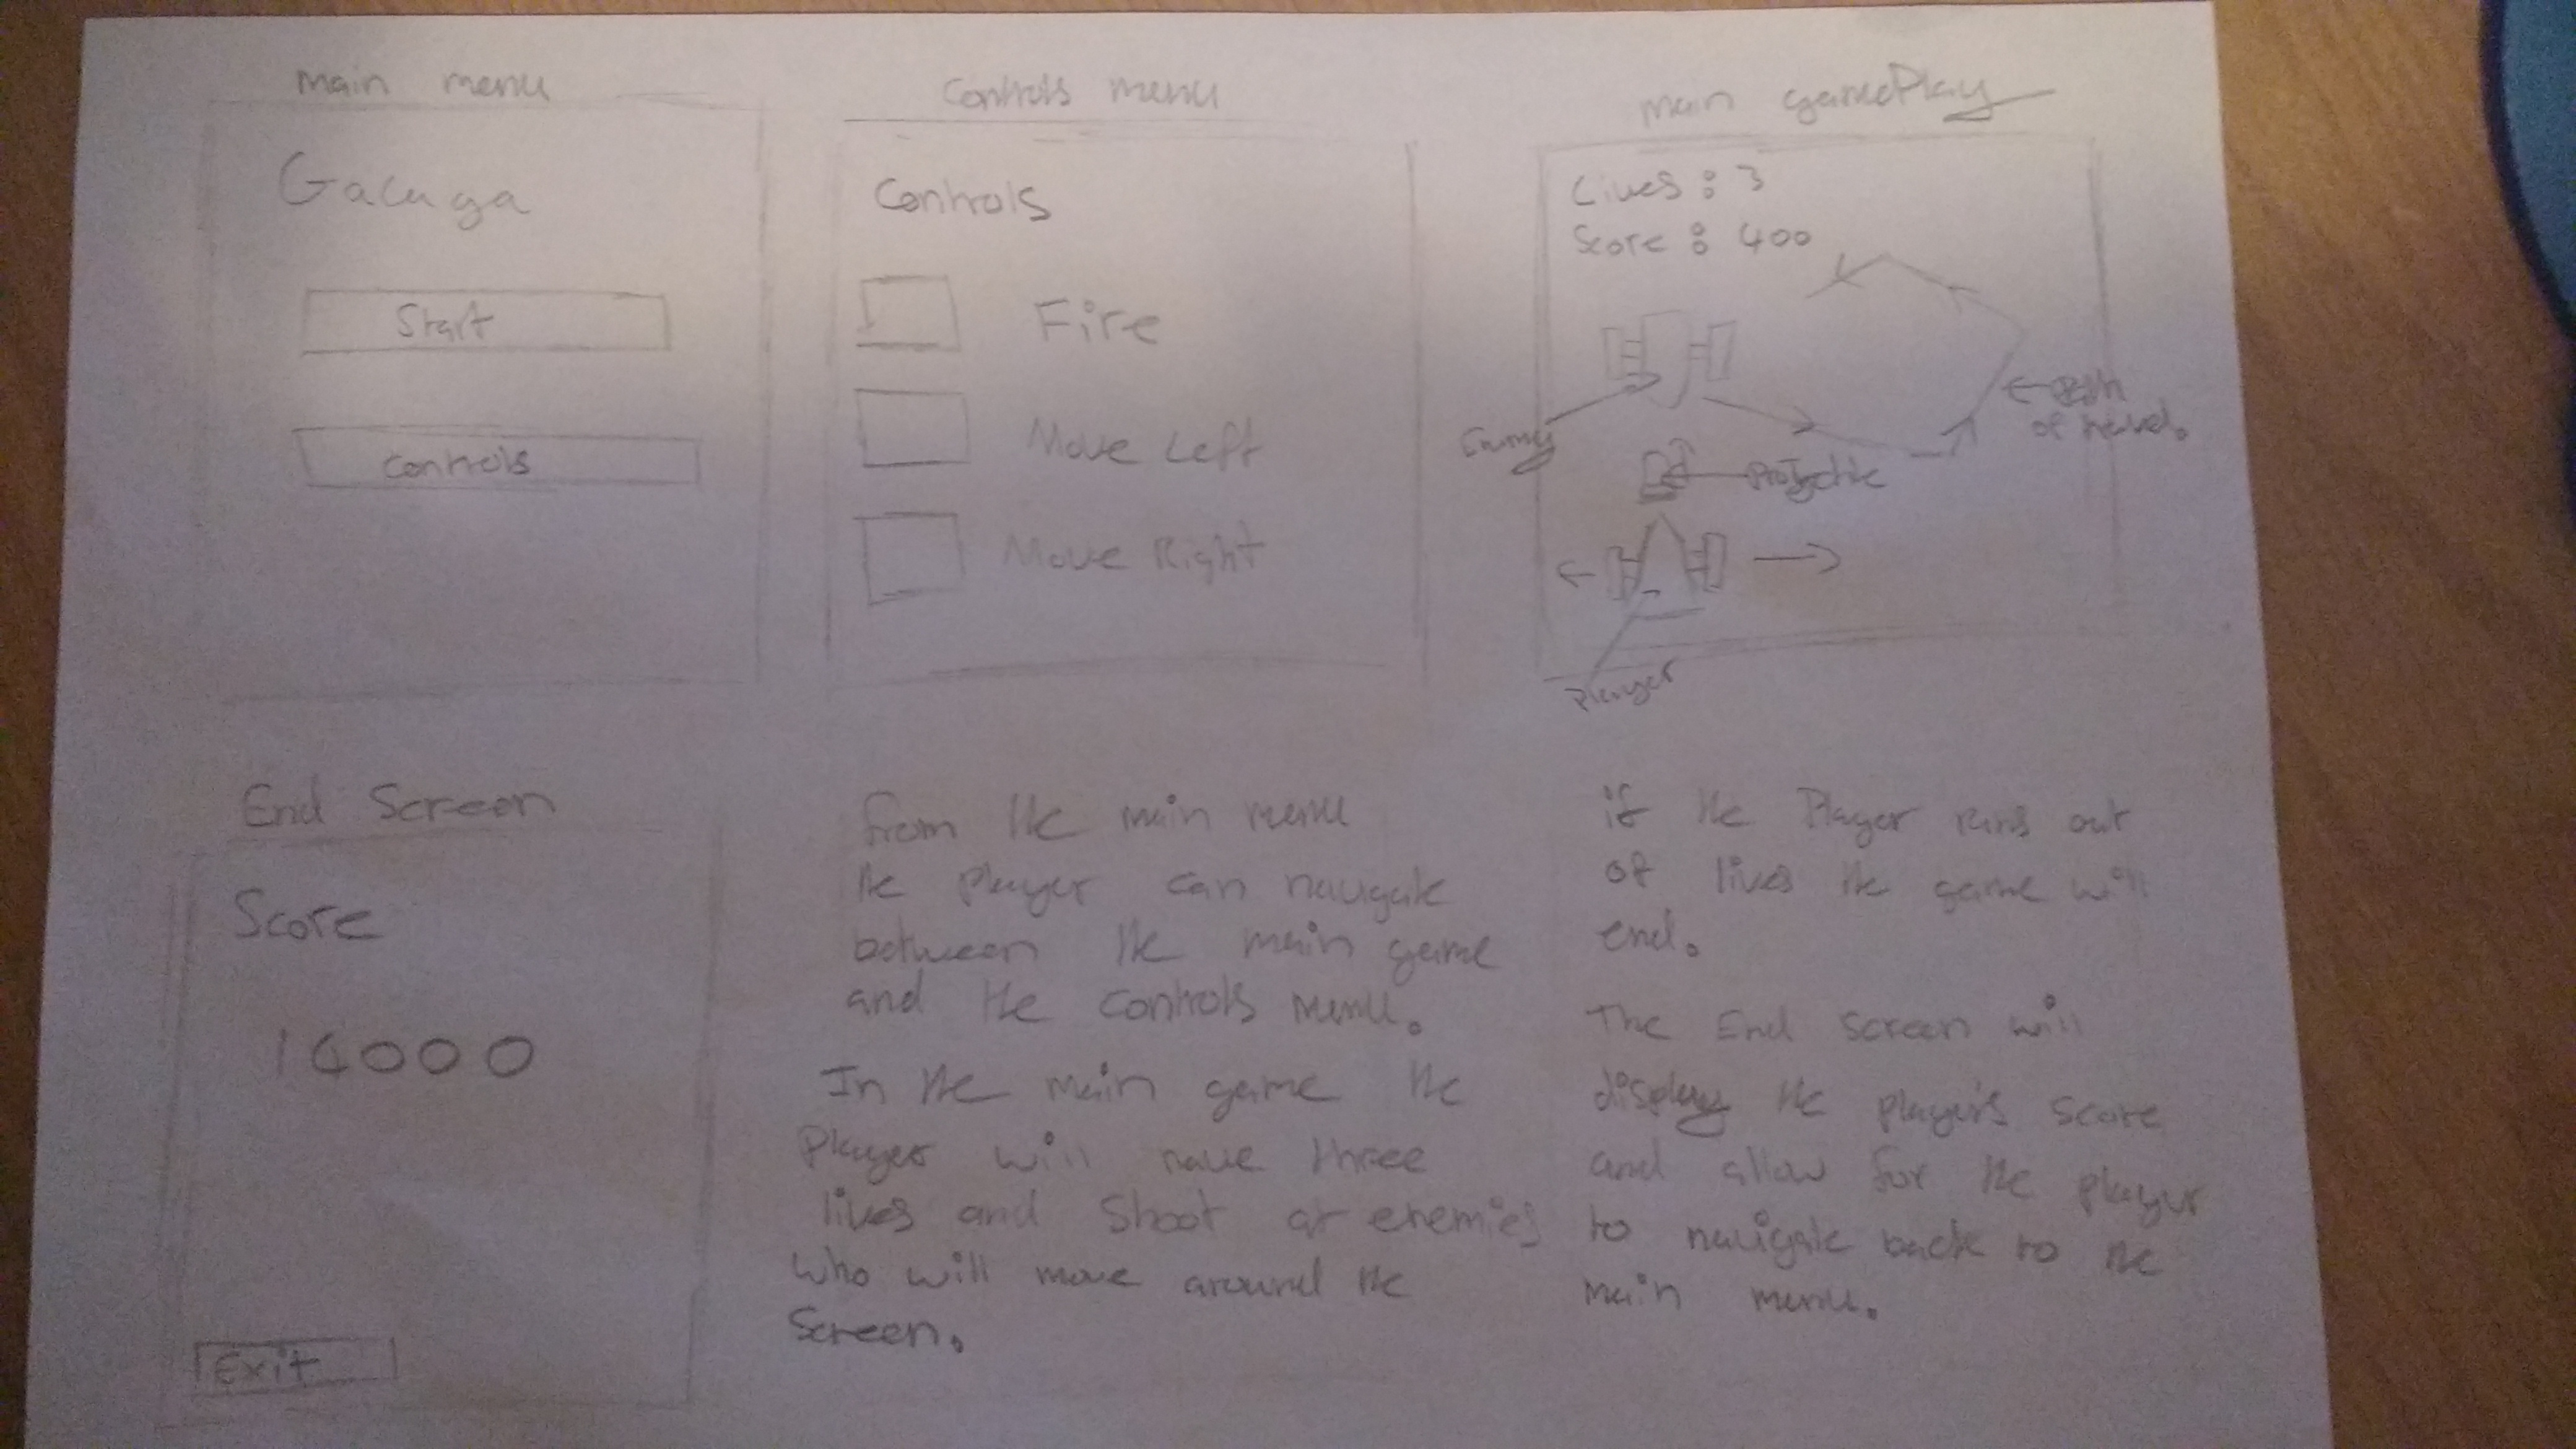 main menu
Galuga
Start
controls
Controls menu
Controls
Fire
Move Left
Move Right
main gamePlay
Lives : 3
Score : 400
Enemy
Path
of travel.
Projectile
Player
End Screen
Score
14000
Exit
from the main menu
the player can navigate
between the main game
and the controls menu.
In the main game the
Player will have three
lives and Shoot at enemies
who will move around the
Screen.
if the Player runs out
of lives the game will
end.
The End Screen will
display the player's score
and allow for the player
to navigate back to the
main menu.